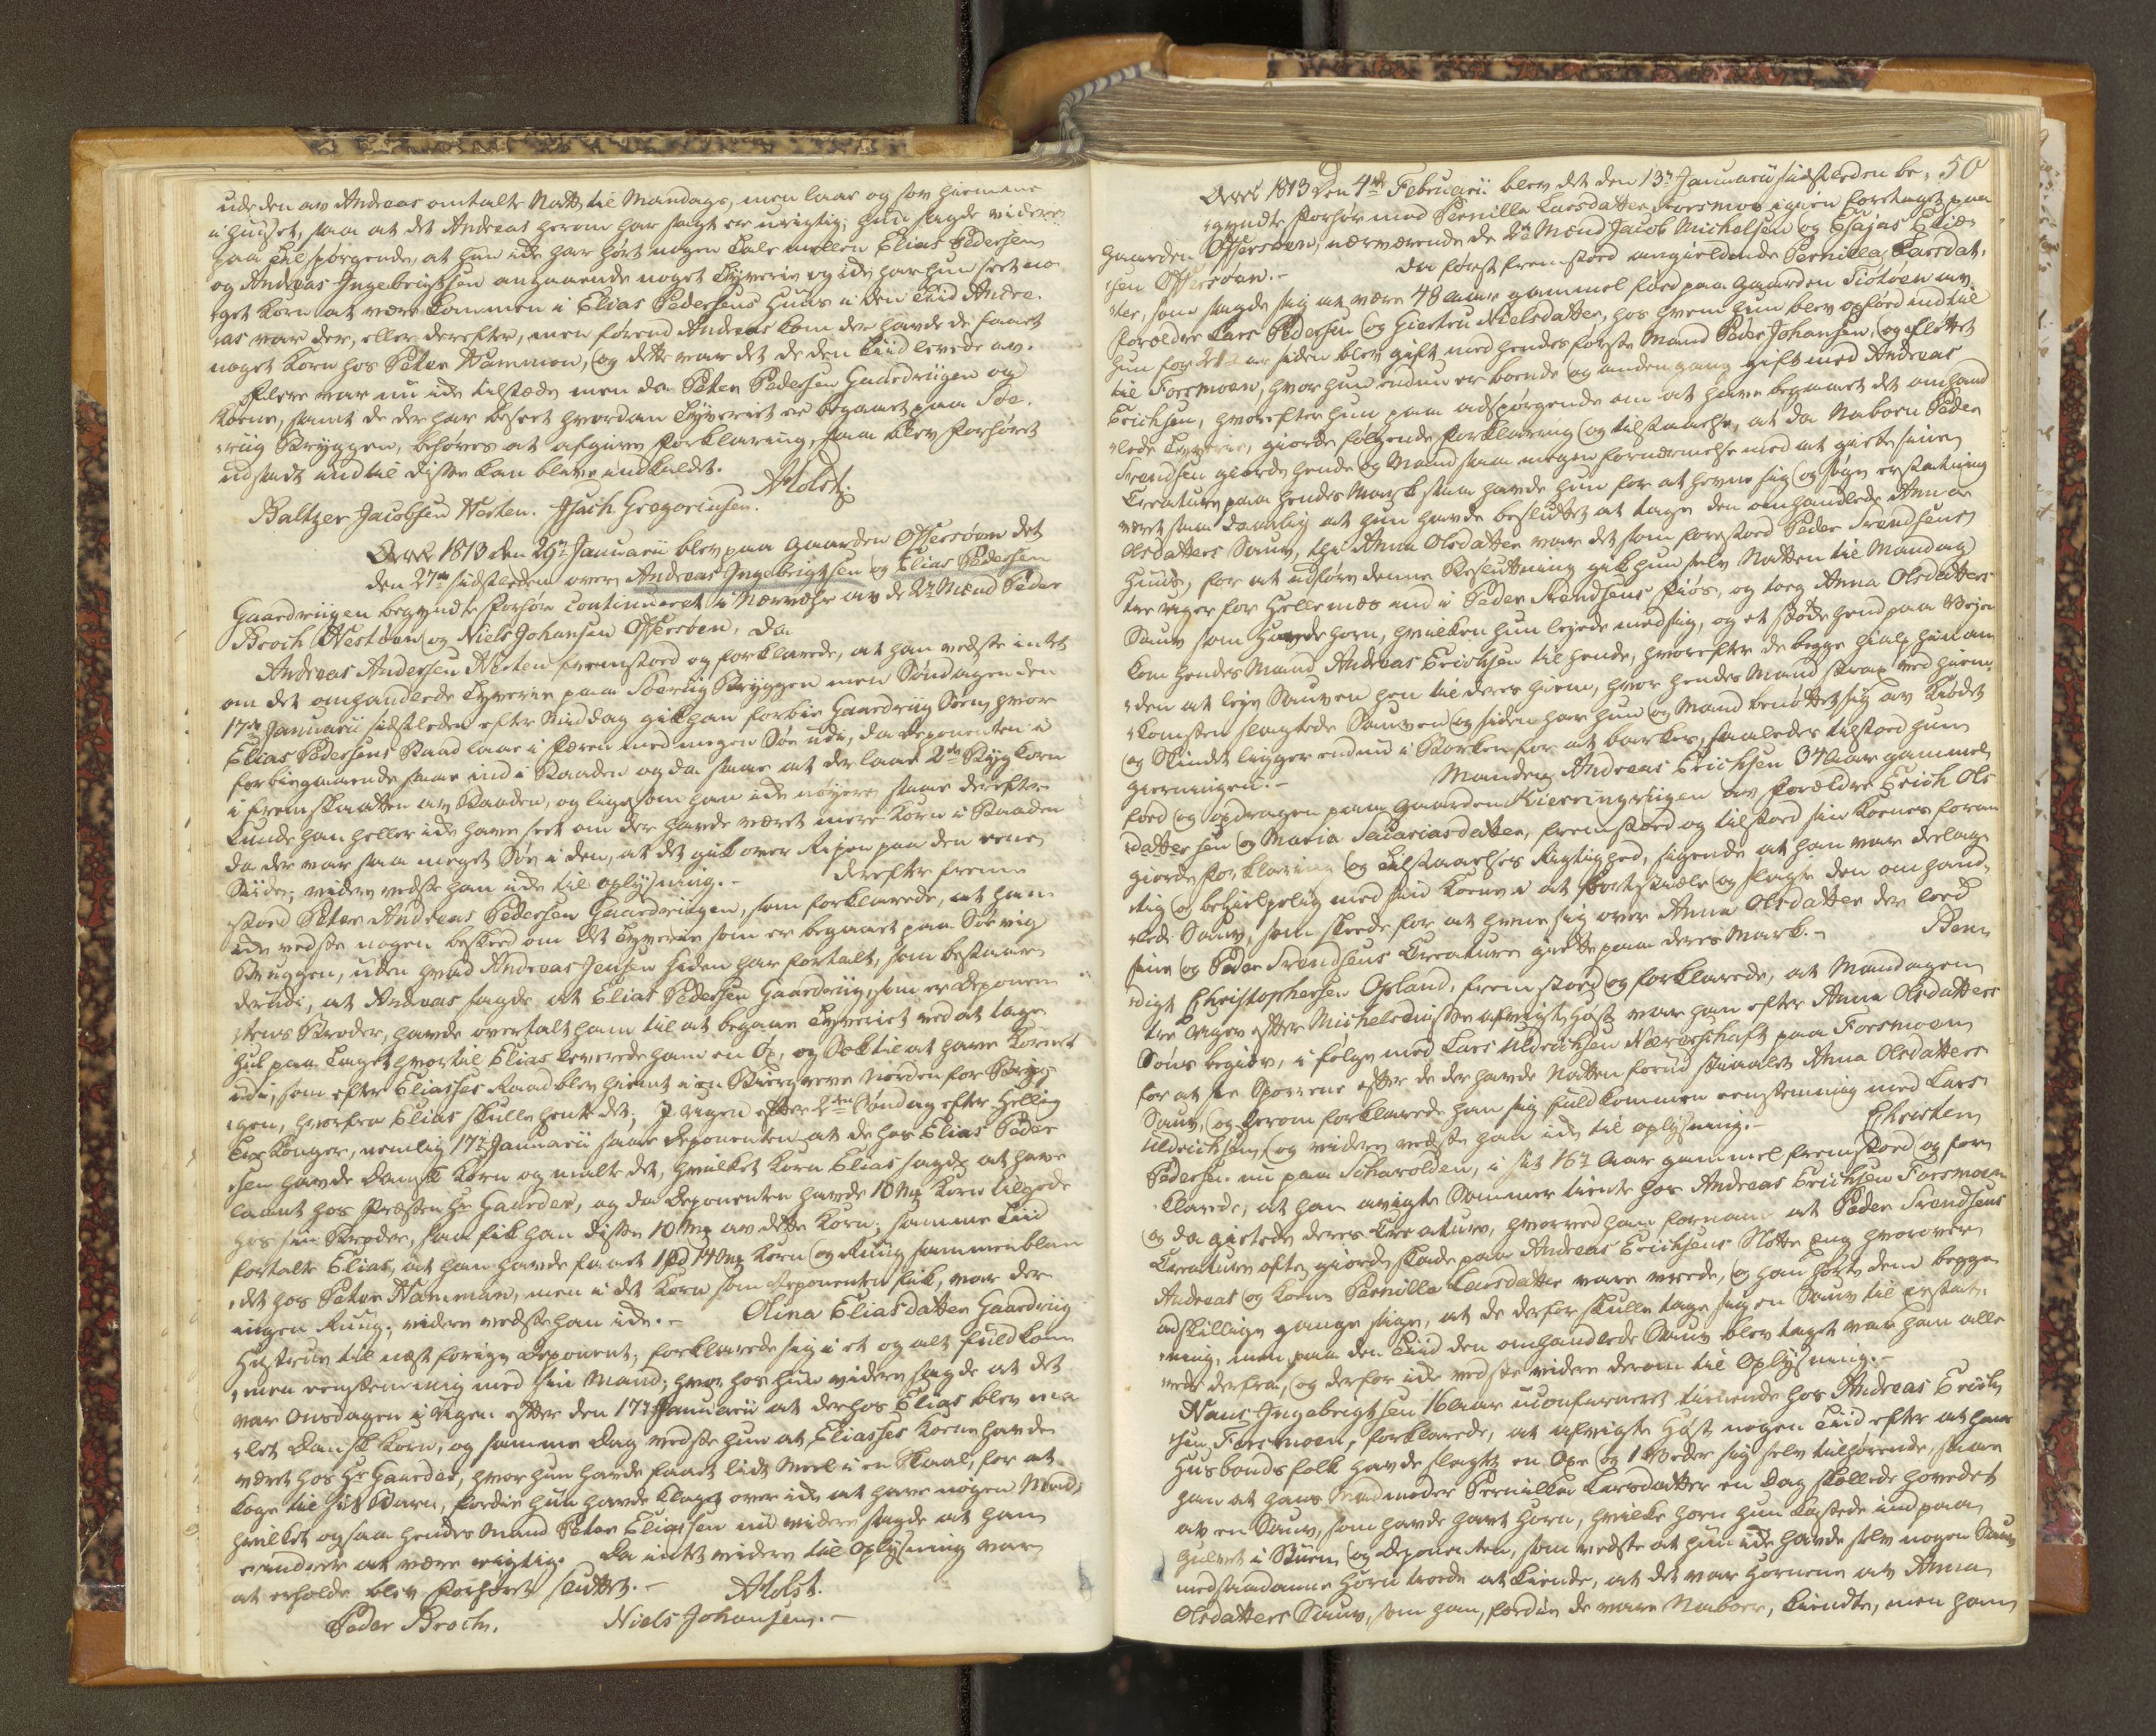 ude den av Andreas omtalte Natt til Mandags, men laae og sov hiemme
i Huuset, saa at det Andreas herom har sagt er urigtig; hun sagde videre
paa tilspørgende, at hun ide har hørt nogen Tale mellem Elias Pedersen
og Andreas Ingebrigtsen angaaende noget Tyverie og ide har hun seet no-
get Korn at være kommen i Elias Pedersens Huus i den Tiid Andre-
as var der, eller derefter, men førend Andreas kom der havde de faaet
noget Korn hos Peter Hammon, og dette var det de den Tiid levede av.
Flere var nu ide tilstæde men da Peter Pedersen Gaardriigen og
Kone, samt de der har beseet hvordan Tyveriet er begaaet paa Søe-
riig Bryggen, behøves at afgive Forklaring, saa blev Forhøret
udsadt indtil disse kan blive indkaldet.
Baltzer Jacobsen Næsten. Isach Gregoriusen. AHolst.
Aar 1813 den 29de Januarii blev paa Gaarden Offersøen det
den 27de sidstleden over Andreas Ingebrigtsen og Elias Pedersen
Gaardriigen begyndte Forhør continueret i Nærværelse av de 2de Mænd Peder
Broch Næstøen og Niels Johansen Offersøen, da
Andreas Andersen Næsten fremstoed og forklarede, at han vedste intet
om det omhandlede Tyverie paa Søeriig Bryggen men Søndagen den
17de Januarii sidstleden efter Middag gik han forbie Gaardriig Søen hvor
Elias Pedersens Baad laae i Færen med megen Søe udi, da Deponenten i
forbiegaaende saae ind i Baaden og da saae at der laae 2de Byg Korn
i fremskaatten av Baaden, og ligesom han ide nøyere saae derefter
kunde han heller ide have seet om der havde været mere Korn i Baaden
da der var saa meget Søe i den, at det gik over Ripen paa den eene
Siide; videre vedste han ide til oplysning.- Derefter frem-
stoed Peter Andreas Pedersen Gaardriigen, som forklarede, at han
ide vedste nogen beskeed om det Tyverie som er begaaet paa Søeriig
Bryggen, uden hvad Andreas Jensen siden har fortalt, som bestaar
derudi, at Andreas sagde at Elias Pedersen Gaardriig, som er Deponen-
tens Broder, havde overtalt ham til at begaae Tyveriet ved at tage
Hul paa Taget hvortil Elias leverede ham en Øx, og Sæk til at have Kornet
udi, som efter Eliasses Raad blev hiemt i en Biergreve Norden for Bryg-
gen, hvorfra Elias skulle hente det; I ugen efter 2den Søndag efter Hellig
Tre Konger, nemlig 17de Januarii saae Deponenten at de hos Elias Peder-
sen havde Dansk Korn og malte det, hvilket Korn Elias sagde at have
laant hos Præsten Hr Gaarder, og da Deponenten havde 10 mk Korn tilgode
hos sin Broder, saa fik han disse 10 mk av dette Korn; samme Tiid
fortalte Elias, at han havde faaet 1 pd 14 mk Korn og Ruug sammenblan-
det hos Peter Hammon, men i det Korn som Deponenten fik, var der
ingen Ruug; videre vedste han ide.- Olina Eliasdatter Gaardriig
Hustrue til næst forige Deponent, forklarede sig i et og alt fuldkom-
men eenstemmig med sin Mand; hvor hos hun videre sagde at det
var Onsdagen i ugen efter den 17de Januarii at der hos Elias blev ma-
let Dansk Korn, og samme Dag vedste hun at Eliasses Kone havde
været hos Hr Gaarder, hvor hun havde faaet lidt Meel i en Skaal, for at
koge til sit Barn, fordie hun havde klaget over ide at have nogen Mad,
hvilket ogsaa hendes Mand Peter Eliassen nu videre sagde at han
erindrede at være rigtig. Da intet videre til Oplysning var
at erholde blev Forhøret sluttet.- AHolst.
Peder Broch. Niels Johansen.-
50
Aar 1813 den 4de Februarii blev det den 13de Januarii sidstleden be-
gyndte Forhør med Pernilla Larsdatter Forsmoe igien foretaget paa
Gaarden Offersøen, nærværende de 2de Mænd Jacob Michelsen og Esajas Elia-
sen Offersøen.- da først fremstoed angieldende Pernilla Larsdat-
ter, som sagde sig at være 48 Aar gammel fød paa Gaarden Tiotøen av
Forældre Lars Pedersen og Giertru Nielsdatter, hos hvem hun blev opfød indtil
hun for 21 Aar siden blev gift med hendes første Mand Peder Johansen, og fløttet
til Forsmoen, hvor hun endnu er boende og anden gang gift med Andreas
Erichsen, hvorefter hun paa adspørgende om at have begaaet det omhand-
lede Tyverie, giorde følgende Forklaring og tilstaaelse, at da Naboen Peder
Svendsen giorde hende og Mand saa megen fornærmelse med at giete sine
Creature paa hendes Mark saa havde hun for at hevne sig og søge erstatning
veret saa daarlig at hun havde besluttet at tage den omhandlede Anna
Olsdatters Sauv, thi Anna Olsdatter var det som forestoed Peder Svendsens
Huus, for at udføre denne Beslutning gik hun selv Natten til Mandag
tre uger for Hellemæs ind i Peder Svendsens Fiøs, og tog Anna Olsdatters
Sauv som havde horn, hvilken hun lejede med sig, og et støde hend paa Vejen
kom hendes Mand Andreas Erichsen til hende, hvorefter de begge hialp hinan-
den at leje Sauven hen til deres hiem, hvor hendes Mand strax ved hiem-
komsten slagtede Sauven og siden har hun og Mand benøttet sig av Kiødet
og Skindet ligger endnu i Barken for at barkes, saaledes tilstoed hun
Gierningen.- Manden Andreas Erichsen 34 Aar gammel
fød og opdragen paa Gaarden Kierringviigen av Forældre Erich Ols-
datter sen og Maria Sacariasdatter, fremstoed og tilstoed sin Kones foran
giorde Forklaring og Tilstaaelses Rigtighed, sigende at han var deelag-
tig og behielpelig med sin Kone i at bortstiæle og slagte den omhand-
lede Sauv, som skeede for at hevne sig over Anna Olsdatter der lod
sine og Peder Svendsens Creature giette paa deres Mark.- Ben-
digt Christophersen Opland, fremstoed og forklarede, at Mandagen
tre Uger efter Michelsmisse afvigte Høst var han efter Anna Olsdatters
Søns begier, i følge med Lars Uldrichsen Nævershaft paa Forsmoen
for at see Sporene efter de der havde Natten forud stiaalet Anna Olsdatters
Sauv, og herom forklarede han sig fuldkommen eenstemmig med Lars
Uldrichsen, og videre vedste han ide til oplysning.- Christen
Pedersen nu paa Scharolden, i sit 16de Aar gammel fremstoed og for-
klarede, at han avigte Sommer tiente hos Andreas Erichsen Forsmoen
og da gietede deres Creature, hvorved han fornam at Peder Svendsens
Creature ofte giorde skade paa Andreas Erichsens Slotte Eng hvorover
Andreas og Kone Pernilla Larsdatter vare vrede, og han hørte dem begge
adskillige gange sige, at de derfor skulle tage sig en Sauv til erstat-
ning, men paa den Tiid den omhandlede Sauv blev taget var han alle-
rede derfra, og derfor ide vedste videre derom til Oplysning.-
Hans Ingebrigtsen 16 Aar uconfirmeret tienende hos Andreas Erich-
sen Forsmoen, forklarede, at afvigte Høst nogen Tiid efter at hans
Husbondsfolk havde slagtet en Oxe og 1 Veder sig selv tilhørende, saae
han at hans Madmoder Pernilla Larsdatter en Dag skollede Hovedet
av en Sauv, som havde havt Horn, hvilke Horn hun kastede ind paa
Gulvet i Stuen og Deponenten, som vedste at hun ide havde selv nogen Sauv
med saadanne Horn troede at kiende, at det var Hornene av Anna
Olsdatters Sauv, som han, fordie de vare Naboer, kiendte, men han